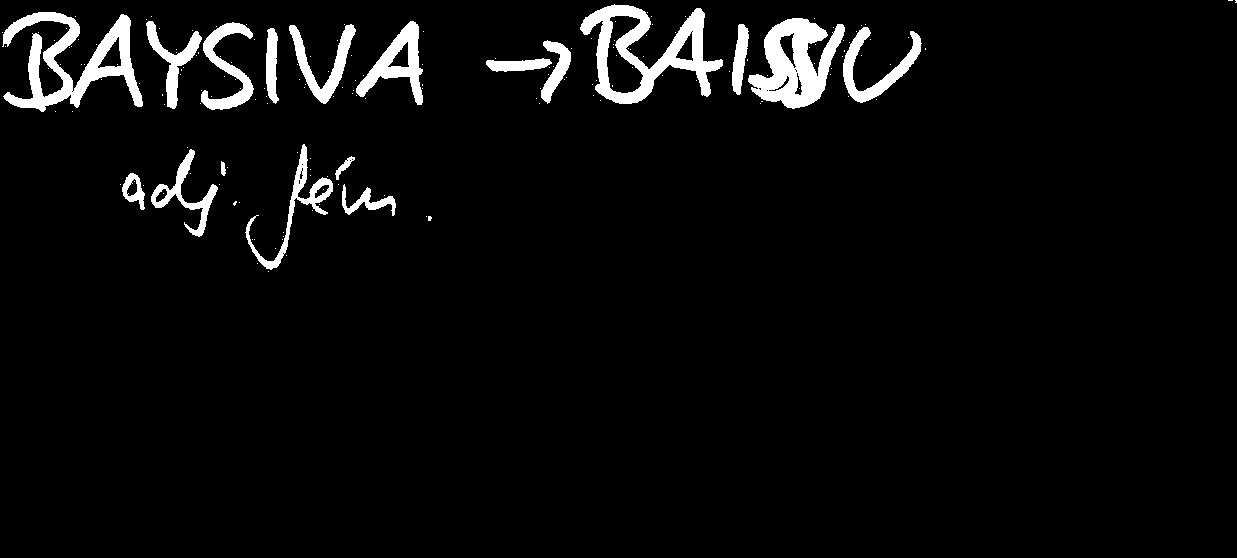 BAYSIVA → BAISSIU
adj. fém.